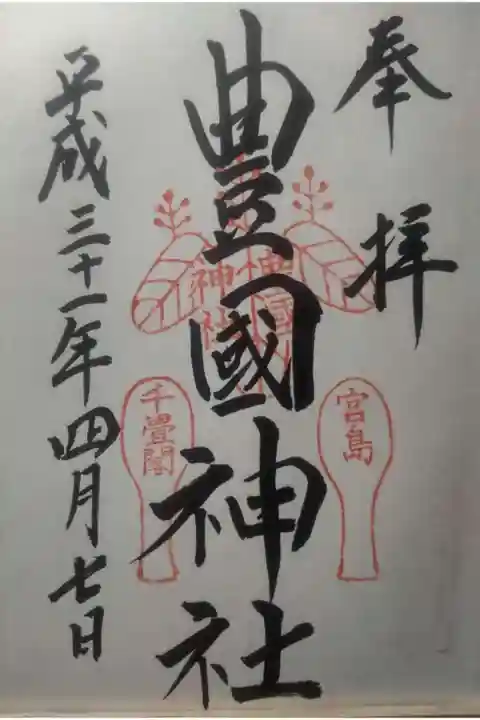 奉拝
豊國神社
平成三十一年四月七日
豊國
神社
宮島
千畳閣